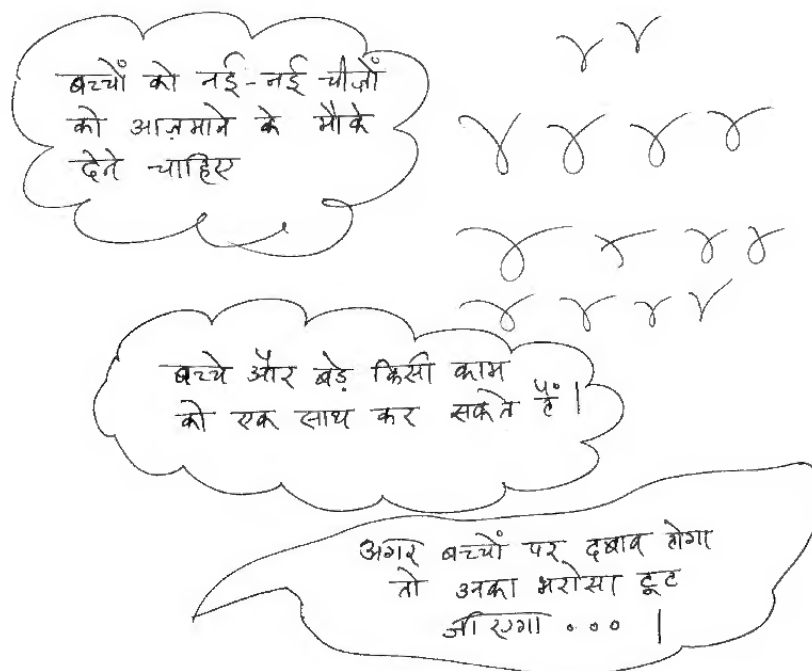 बच्चों को नई-नई चीज़ों
को आज़माने के मौके
देने चाहिए
बच्चे और बड़े किसी काम
को एक साथ कर सकते हैं।
अगर बच्चों पर दबाव होगा
तो उनका भरोसा टूट
जाएगा ... ।